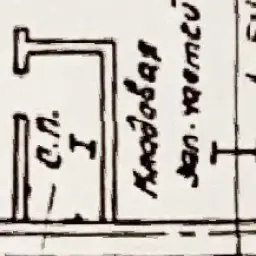 С.П.
I
Кладовая
зап. частей